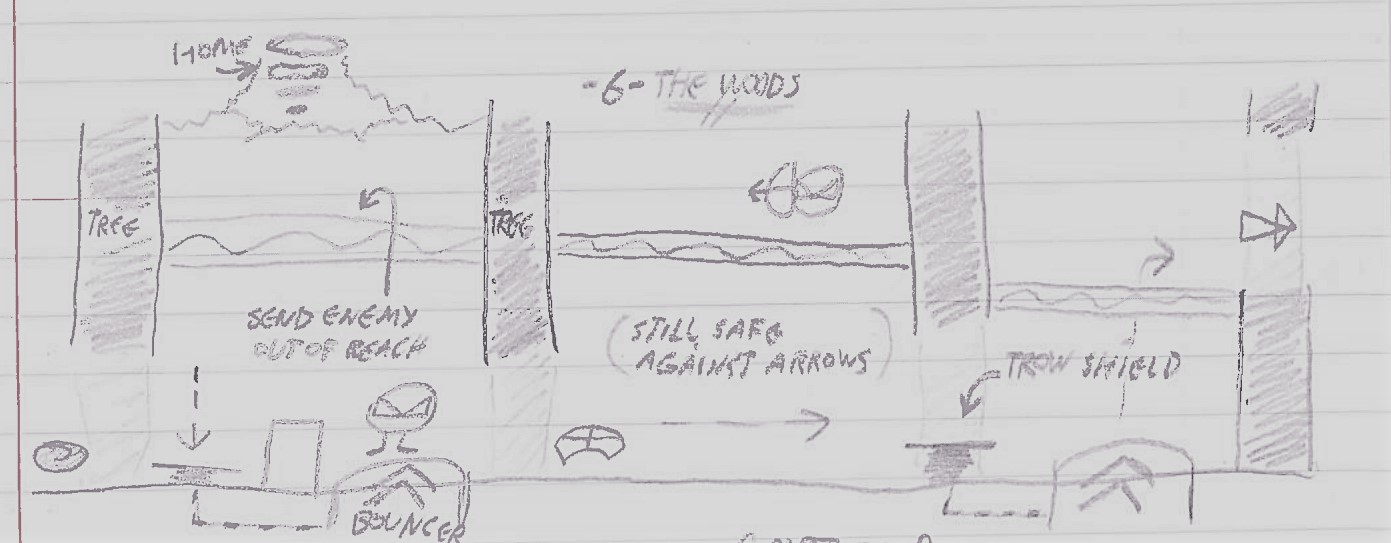 HOME
-6- THE WOODS
TREE
TREE
SEND ENEMY
OUT OF REACH
(STILL SAFE
AGAINST ARROWS)
TROW SHIELD
BOUNCER